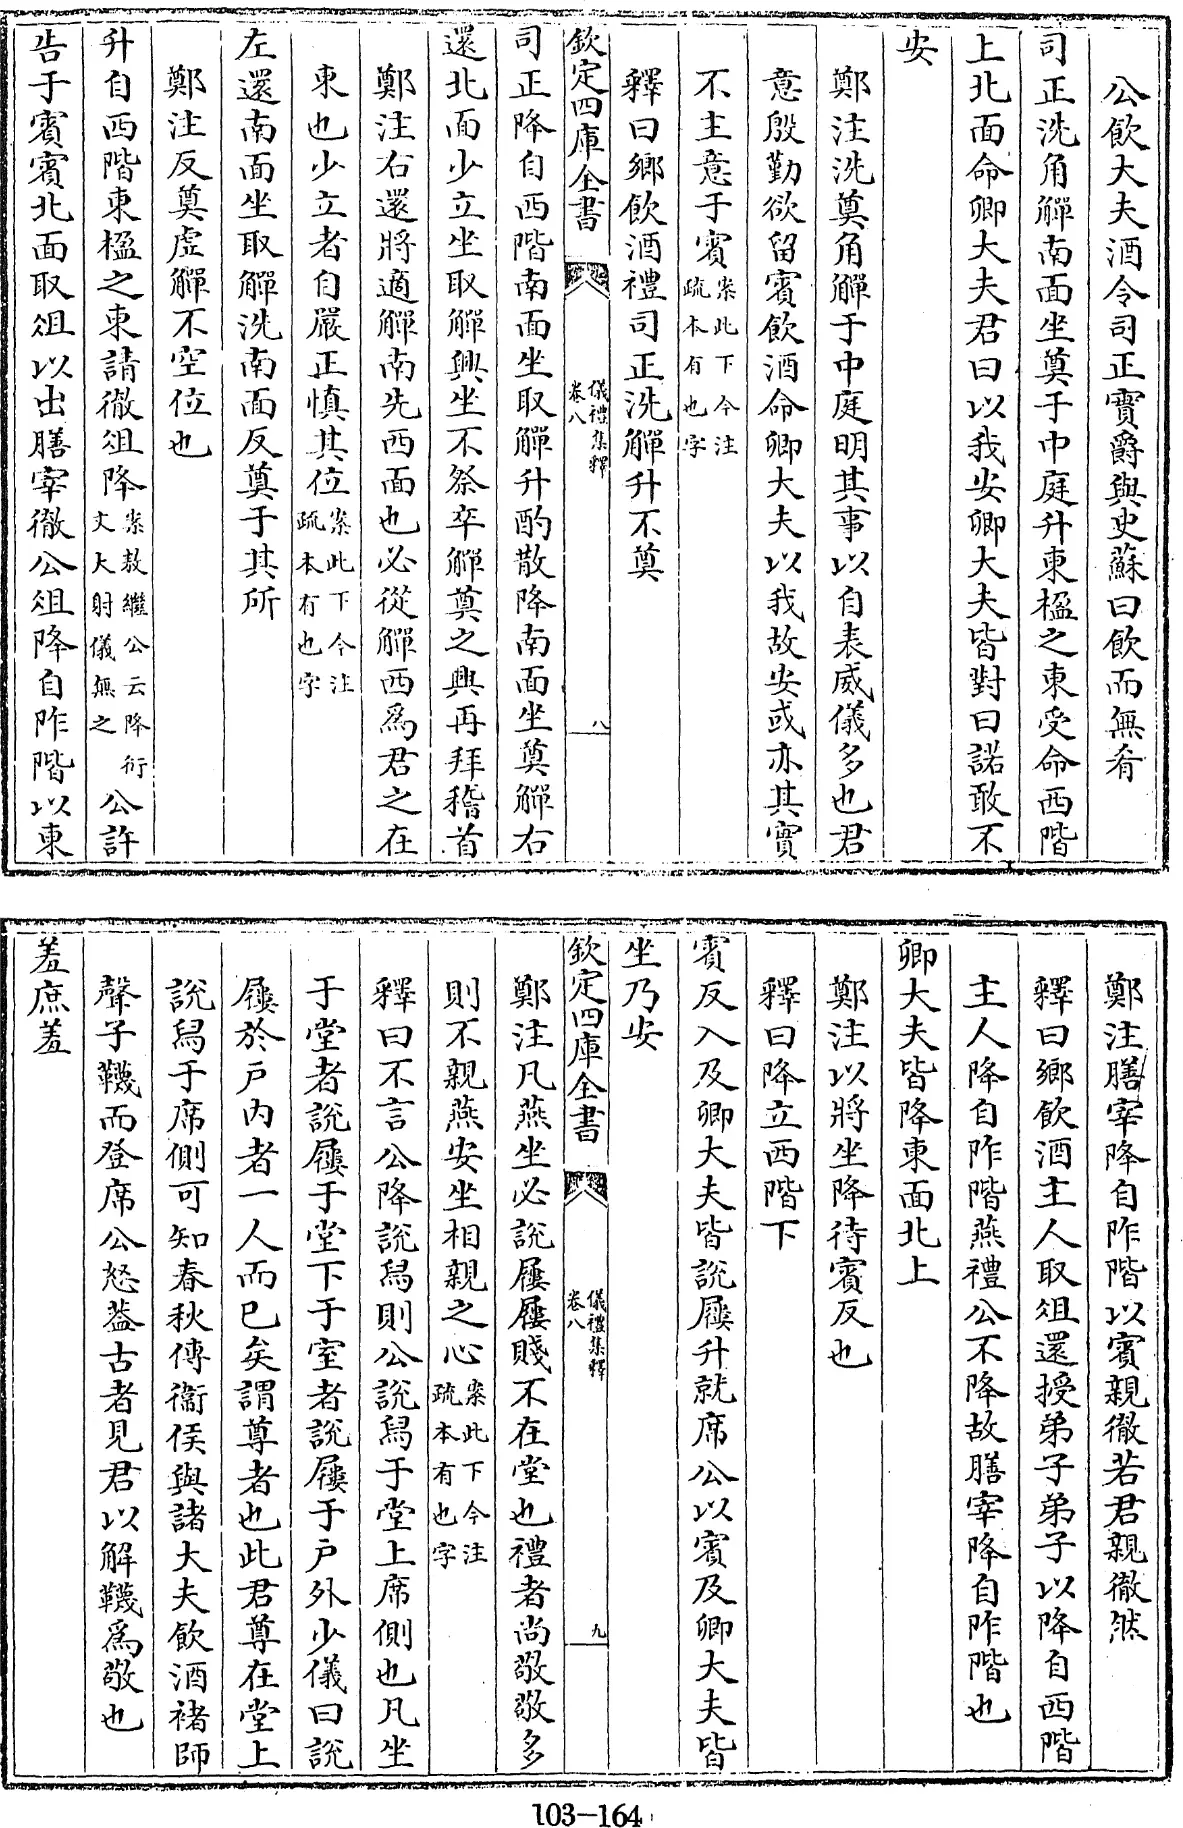 公飲大夫酒令司正實爵與史蘇曰飲而無肴
司正洗角觶南面坐奠于中庭升東楹之東受命西階
上北面命卿大夫君曰以我安卿大夫皆對曰諾敢不
安
鄭注洗奠角觶于中庭明其事以自表威儀多也君
意殷勤欲留賓飲酒命卿大夫以我故安或亦其實
不主意于賓案此下今注疏本有也字
釋曰鄉飲酒禮司正洗觶升不奠
欽定四庫全書 儀禮集釋 卷八 八
司正降自西階南面坐取觶升酌散降南面坐奠觶右
還北面少立坐取觶興坐不祭卒觶奠之興再拜稽首
鄭注右還將適觶南先西面也必從觶西爲君之在
東也少立者自嚴正慎其位案此下今注疏本有也字
左還南面坐取觶洗南面反奠于其所
鄭注反奠虛觶不空位也
升自西階東楹之東請徹俎降案敖繼公云降衍文大射儀無之公許
告于賓賓北面取俎以出膳宰徹公俎降自阼階以東
鄭注膳宰降自阼階以賓親徹若君親徹然
釋曰鄉飲酒主人取俎還授弟子弟子以降自西階
主人降自阼階燕禮公不降故膳宰降自阼階也
卿大夫皆降東面北上
鄭注以將坐降待賓反也
釋曰降立西階下
賓反入及卿大夫皆說屨升就席公以賓及卿大夫皆
坐乃安
欽定四庫全書 儀禮集釋 卷八 九
鄭注凡燕坐必說屨屨賤不在堂也禮者尚敬敬多
則不親燕安坐相親之心案此下今注疏本有也字
釋曰不言公降說舄則公說舄于堂上席側也凡坐
于堂者說屨于堂下于室者說屨于戶外少儀曰說
屨於戶內者一人而已矣謂尊者也此君尊在堂上
說舄于席側可知春秋傳衞侯與諸大夫飲酒褚師
聲子韈而登席公怒葢古者見君以解韈爲敬也
羞庶羞
103-164